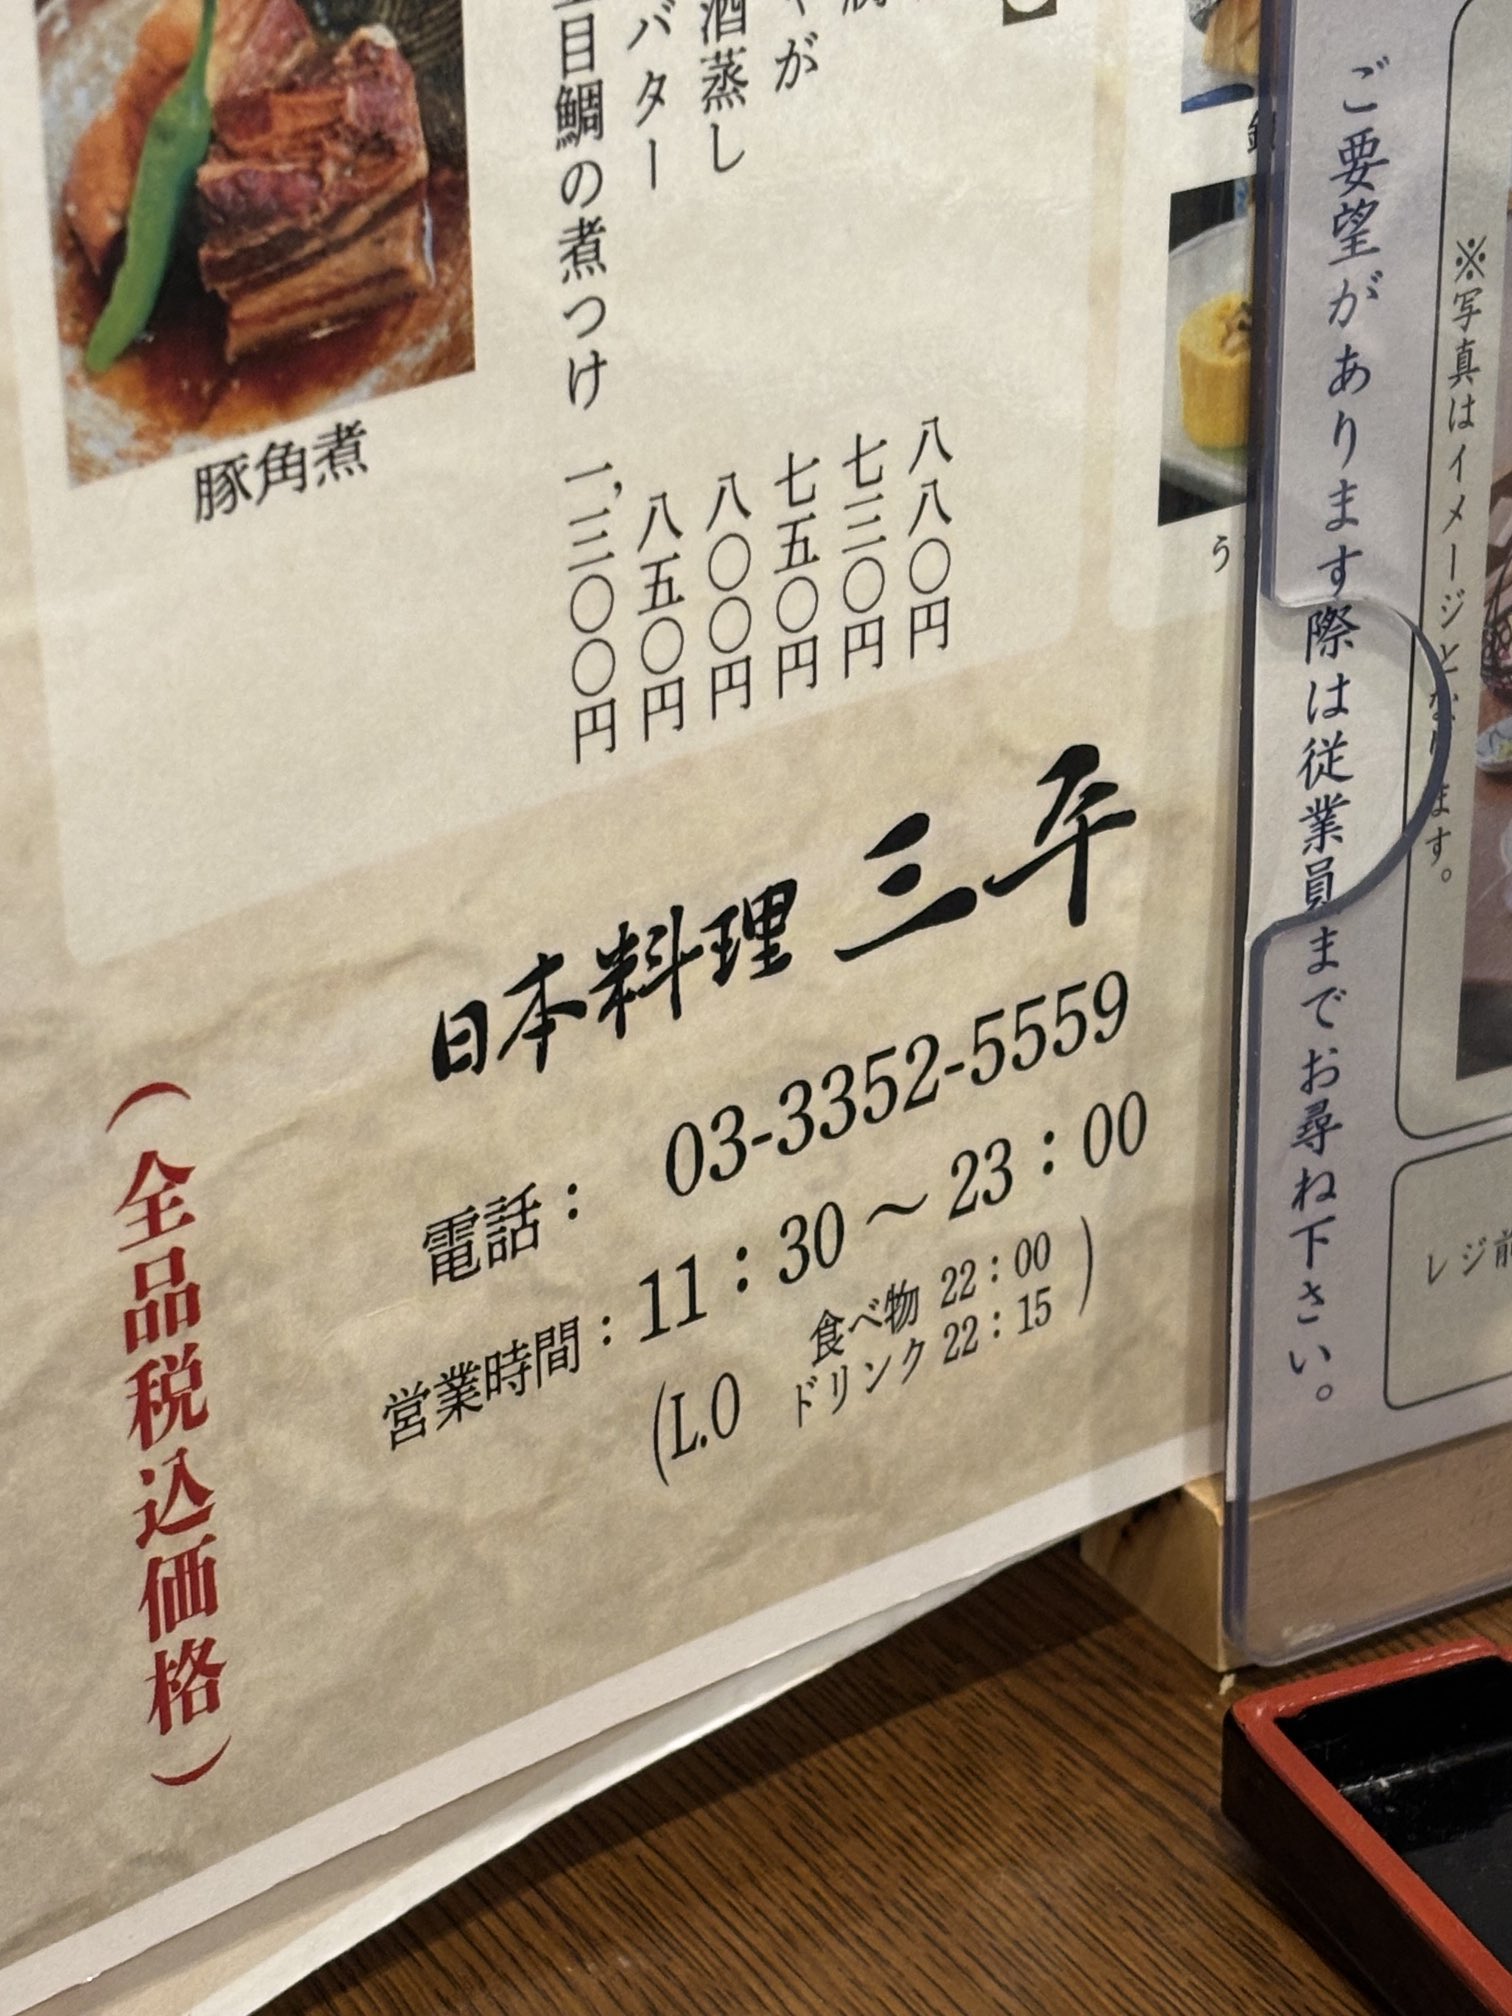 ご要望があります際は従業員までお尋ね下さい。
※写真はイメージとなります。
レジ前
う
八八〇円
が
七三〇円
七五〇円
酒蒸し
八〇〇円
バター
八五〇円
目鯛の煮つけ 一,三〇〇円
豚角煮
日本料理 三平
電話： 03-3352-5559
営業時間：11：30～23：00
(L.O 食べ物 22：00
ドリンク 22：15 )
(全品税込価格)